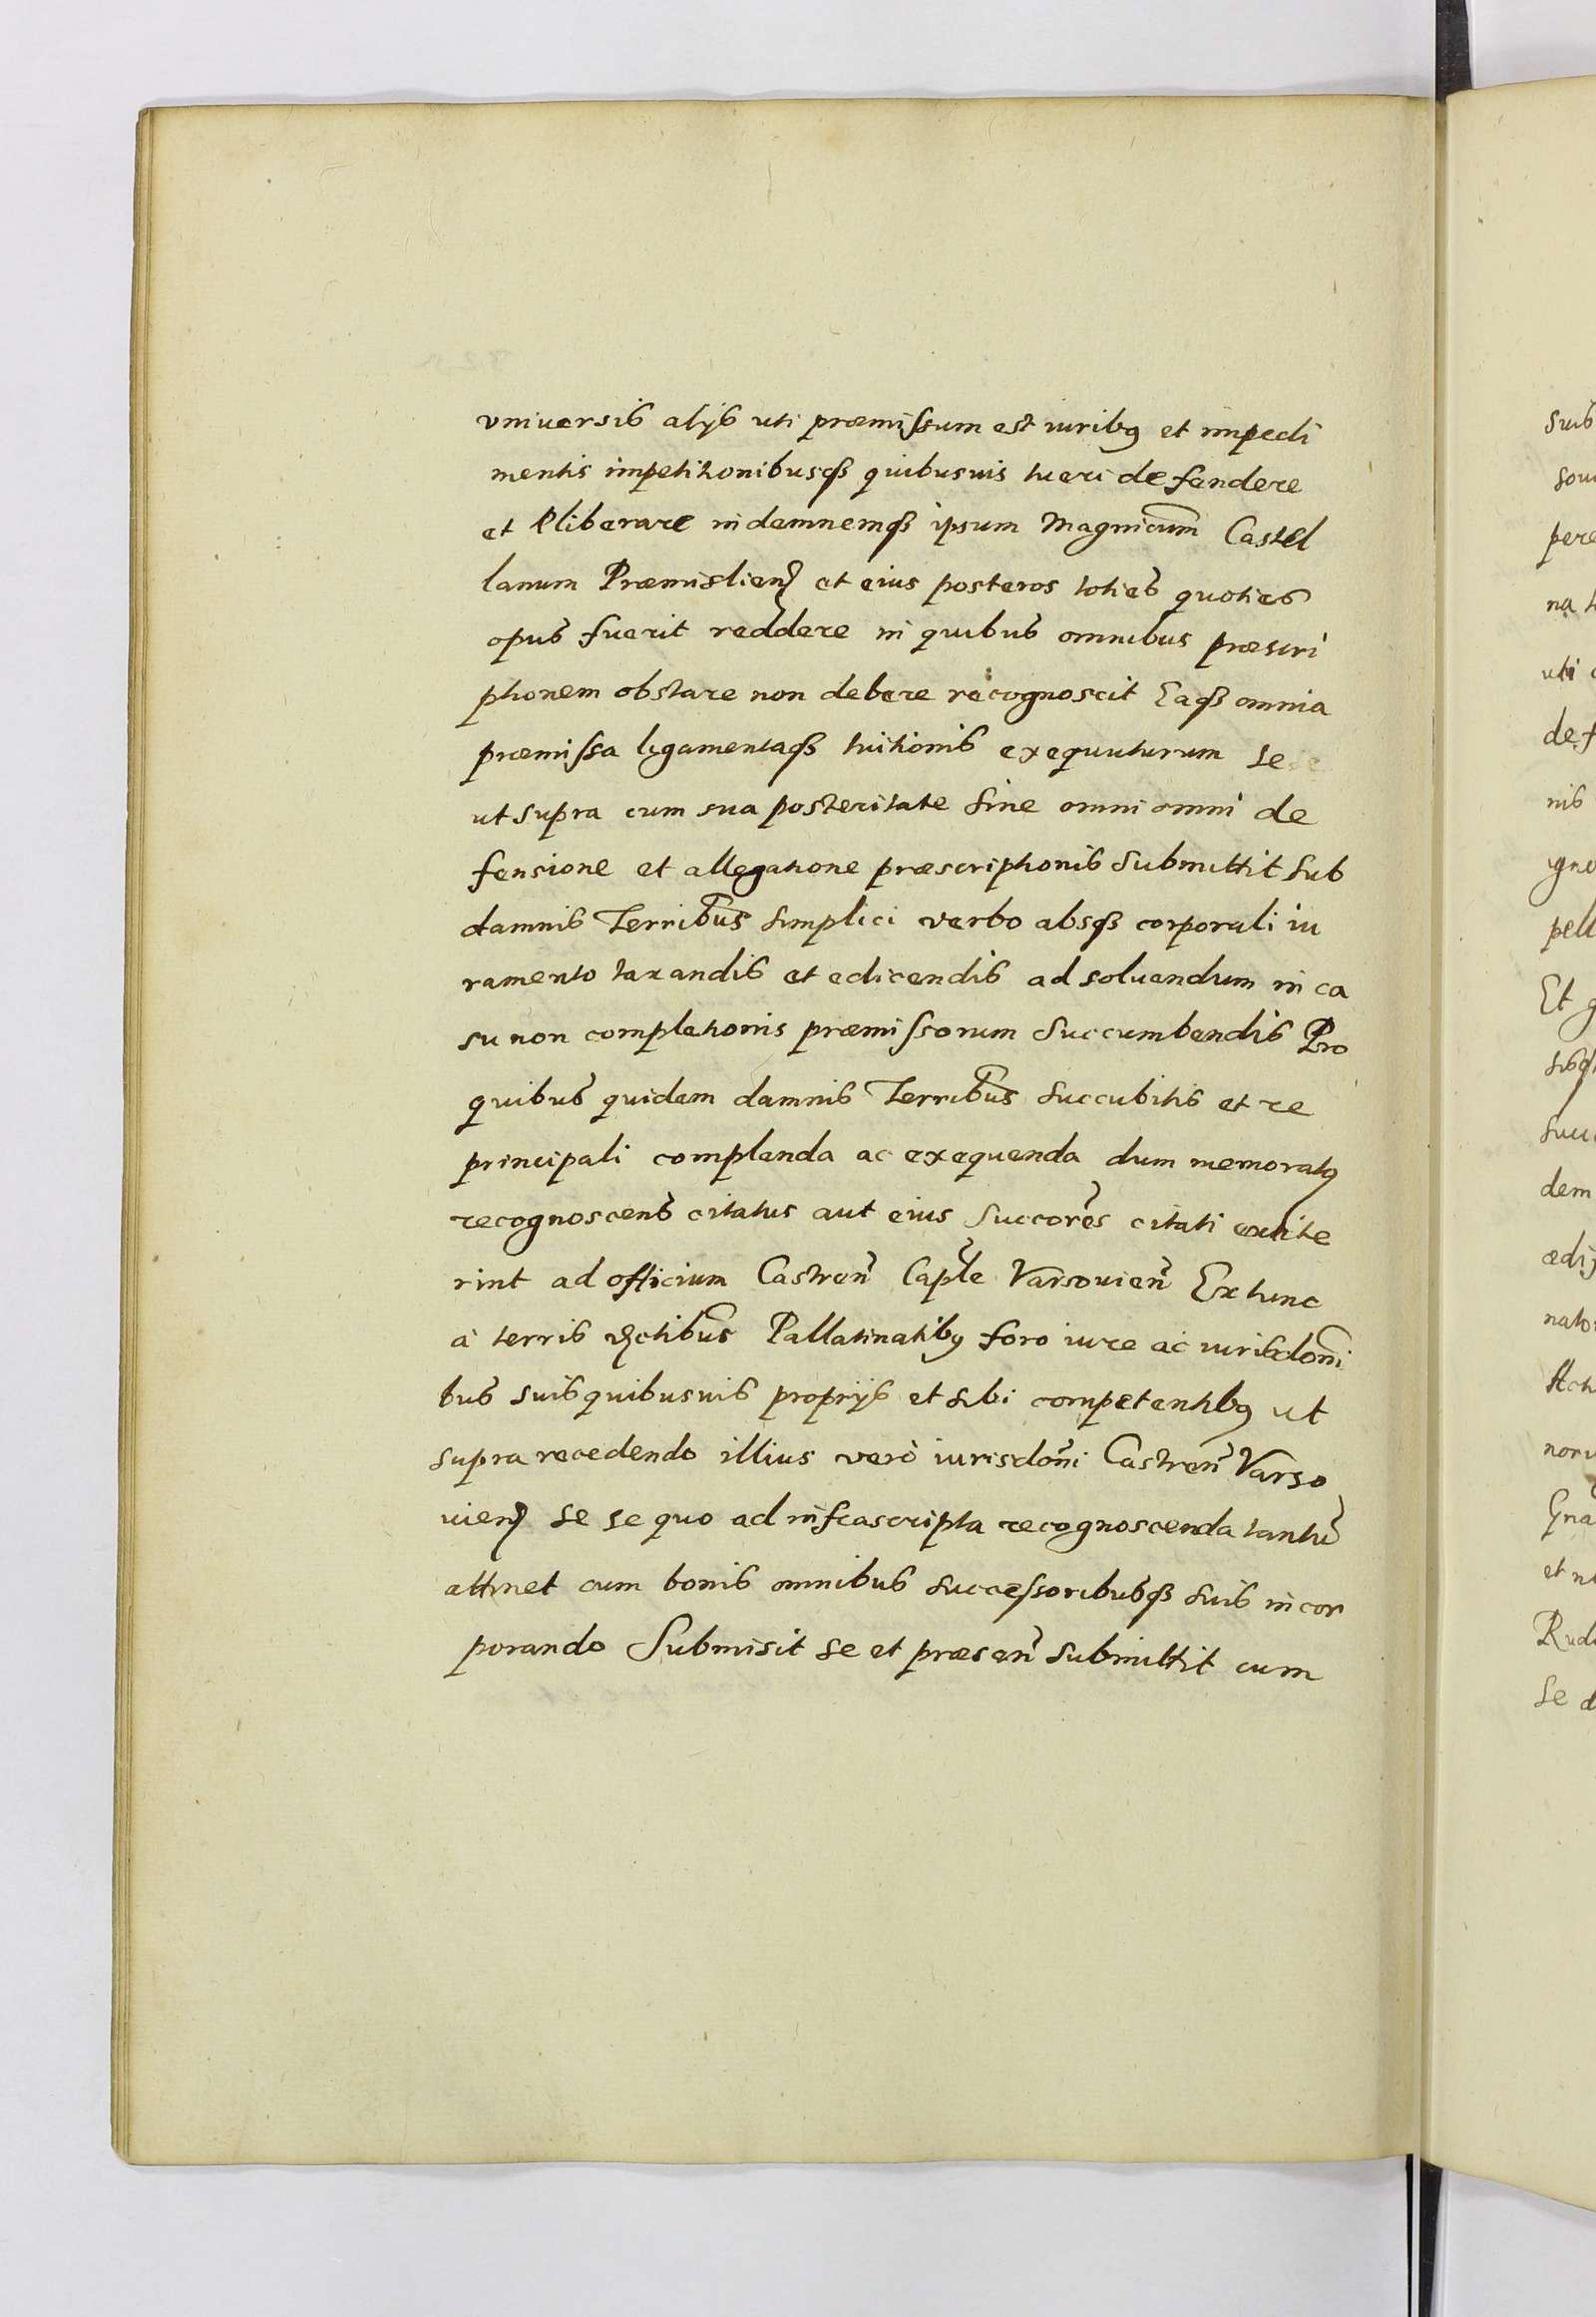 vniuersis alijs uti præmissum est iuribus et impedi
mentis impetitionibusque quibusuis tueri defendere
et eliberare indemnemque ipsum Magnicum Castel
lanum Præmislien et eius posteros toties quoties
opus fuerit reddere in quibus omnibus præscri
ptionem obstare non debere recognoscit Eaque omnia
præmissa ligamentaque tuitionis exequuturum se
ut supra cum sua posteritate sine omni omni de
fensione et allegatione præscriptionis submittit sub
damnis Terribus simplici verbo absque corporali iu
ramento taxandis et edicendis ad soluendum in ca
su non completionis præmissorum succumbendis Pro
quibus quidem damnis Terribus succubitis et re
principali complenda ac exequenda dum memoratus
recognoscens citatus aut eius succores citati extite
rint ad officium Castren Caple Varsouien Ex tunc
à terris Pallatinatibus foro iure ac iurisdoni
bus suis quibusuis proprijs et sibi competentibus ut
supra recedendo illius verò iurisdoni Castren Varso
uien se se quo ad infrascripta recognoscenda tantu
attinet cum bonis omnibus successoribusque suis incor
porando Submisit se et præsen submittit cum
suis
pere
uti
de f
nis
igno
pell
Et
succ
dem
ædij
nato
Act
noru
Gna
et
Rud
se d